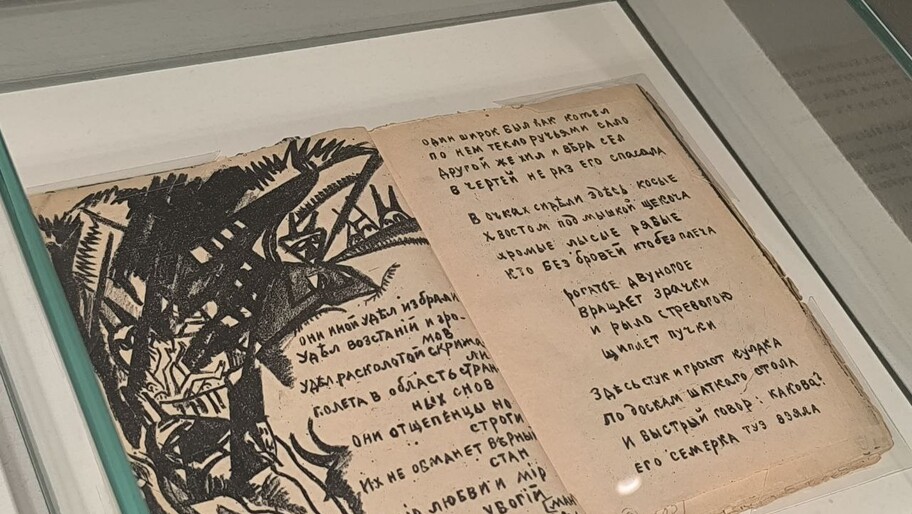 они иной удѣл избрали
удѣл возстаній и гро-
мов
удѣл расколотой скрижа
ли
полета в область стран
ных снов
они отщепенцы но
строги
их не обманет вѣрный
стан
любви и мір
убогій
один широк был как котел
по нем текло ручьями сало
другой же хил и вѣра сел
в чертей не раз его спасала
в очках сидѣли здѣсь косые
хвостом под мышкой щекоча
хромые лысые рябые
кто без бровей кто без плеча
рогатое двуногое
вращает зрачки
и рыло с тревогою
щиплет пучки
здѣсь стук и грохот кулака
по доскам шаткаго стола
и быстрый говор: какова?
его семерка туз взяла